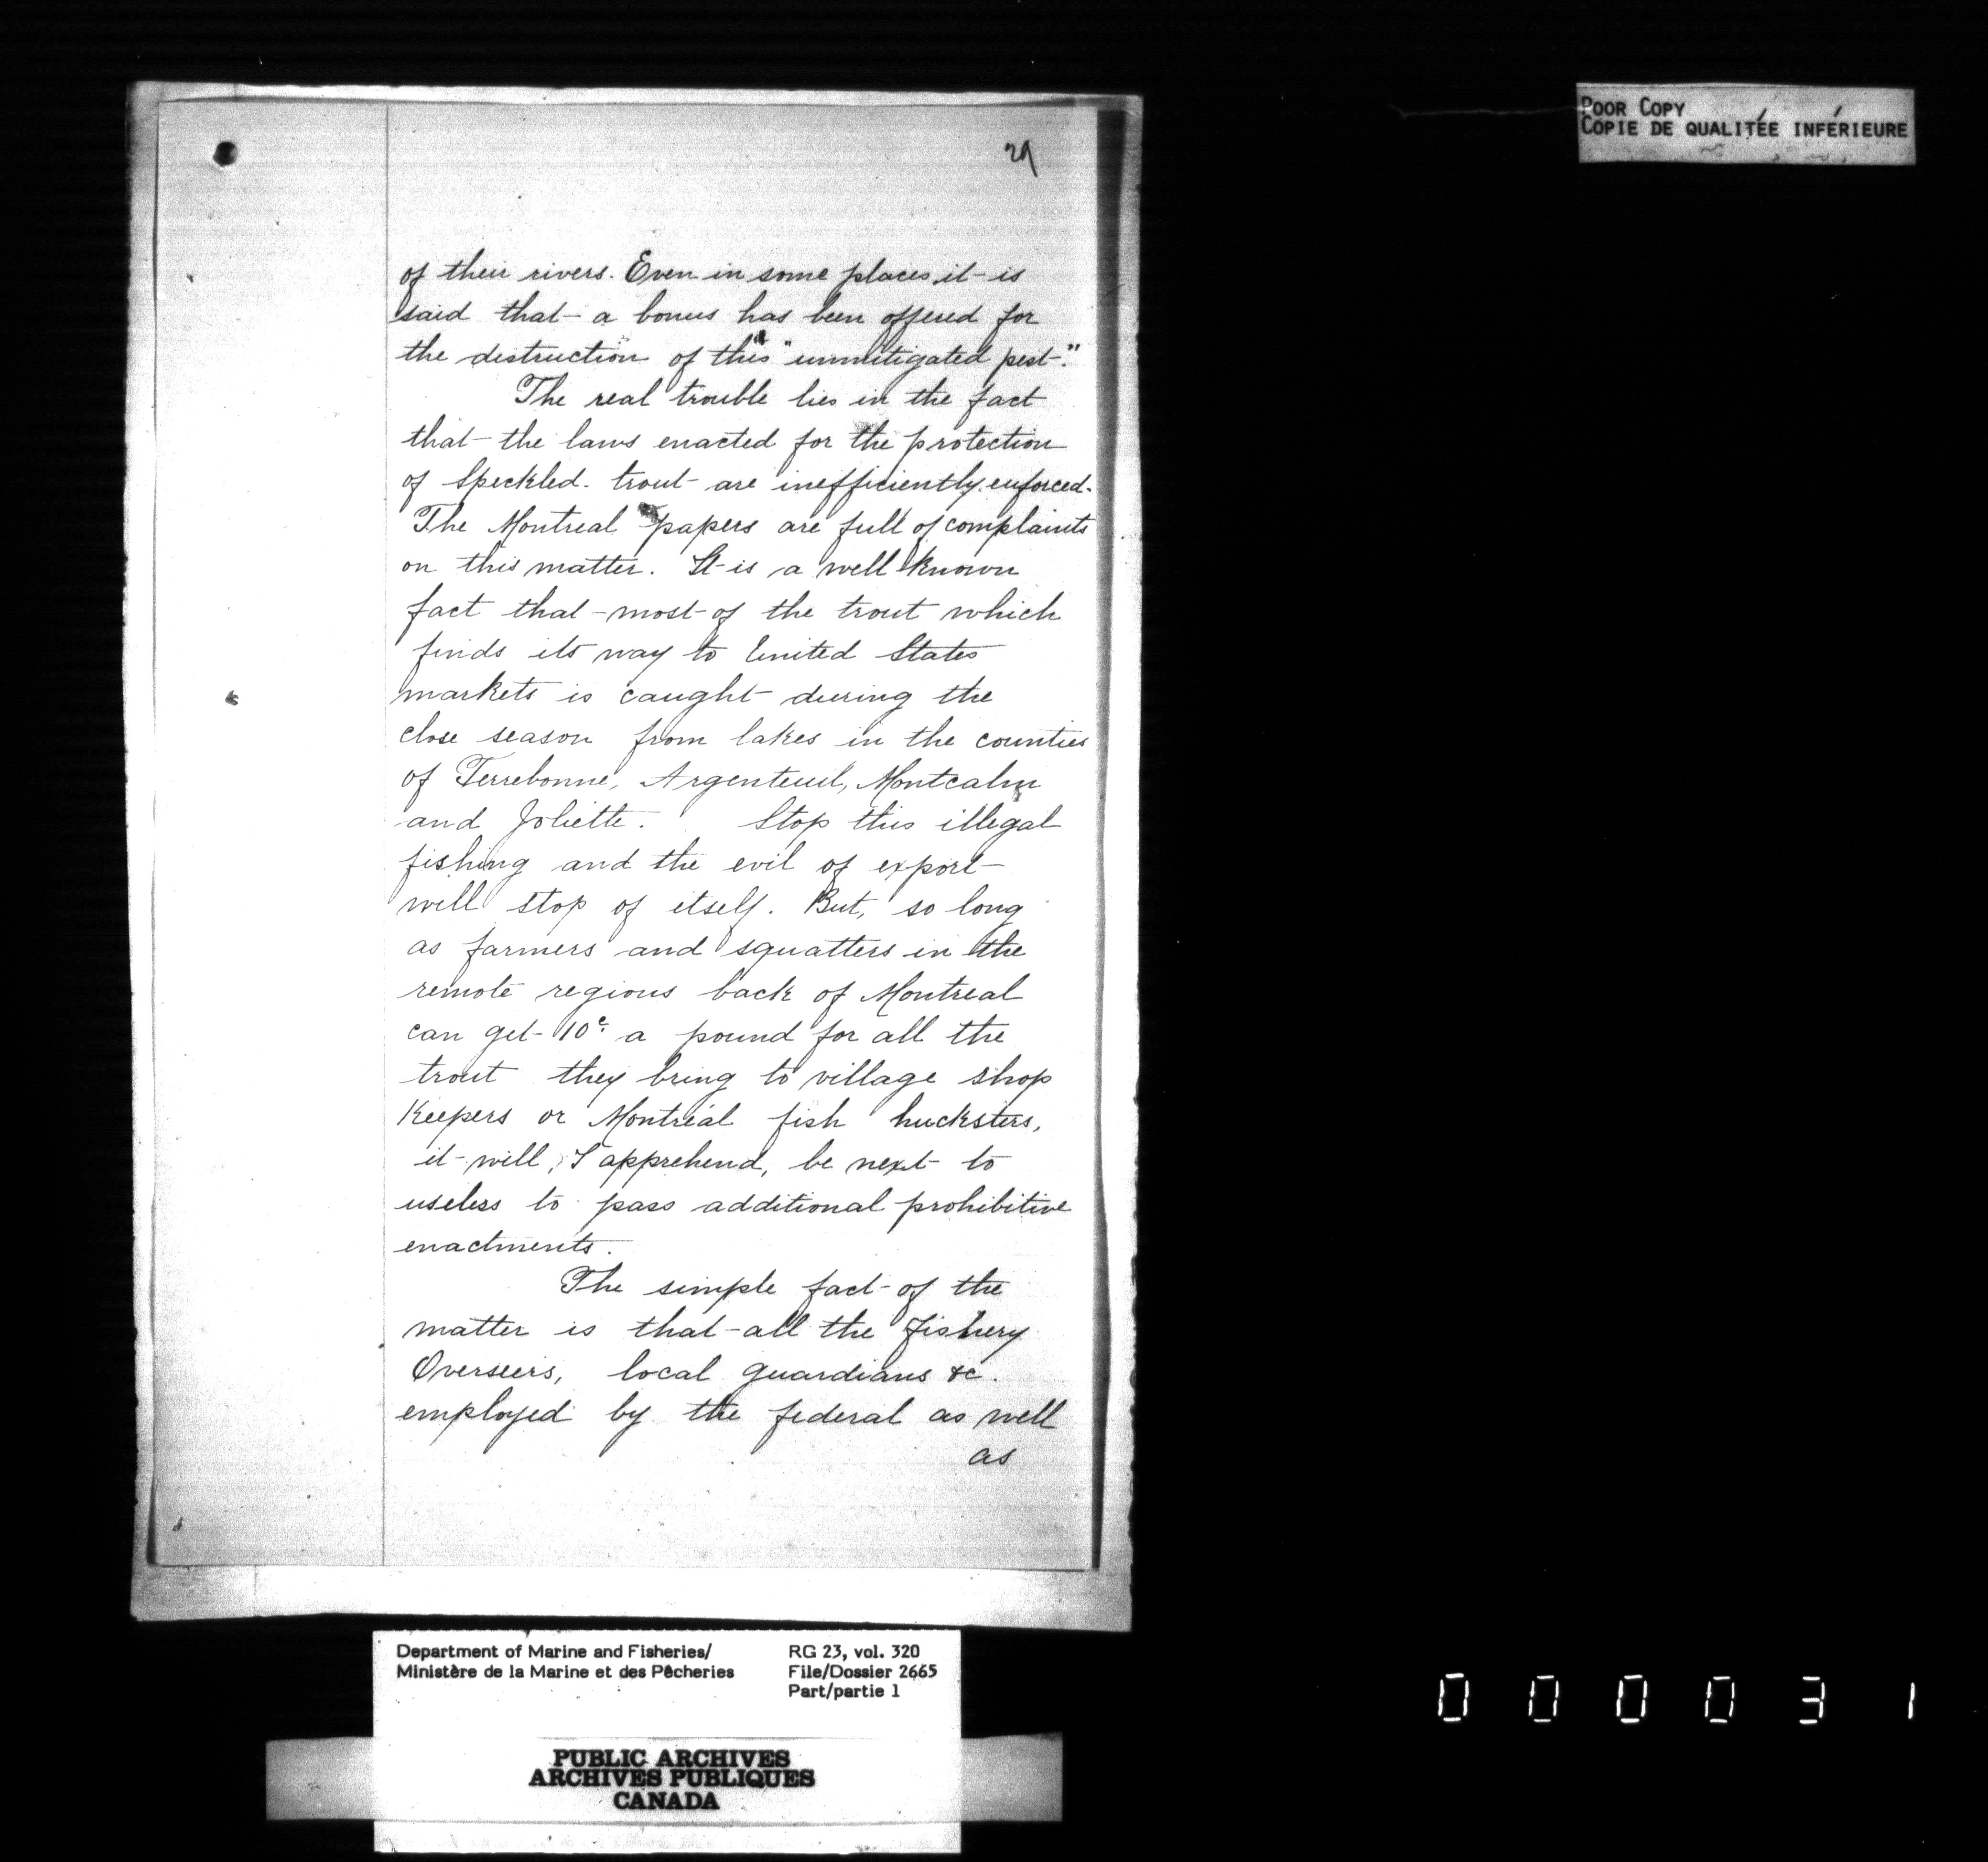 POOR COPY
COPIE DE QUALITÉE INFÉRIEURE
29
of their rivers. Even in some places, it is
said that a bonus has been offered for
the destruction of this "unmitigated pest."
The real trouble lies in the fact
that the laws enacted for the protection
of Speckled trout are inefficiently enforced.
The Montreal papers are full of complaints
on this matter. It is a well known
fact that most of the trout which
finds its way to United States
markets is caught during the
close season from lakes in the counties
of Terrebonne, Argenteuil, Montcalm
and Joliette. Stop this illegal
fishing and the evil of export
will stop of itself. But, so long
as farmers and squatters in the
remote regions back of Montreal
can get 10c. a pound for all the
trout they bring to village shop
keepers or Montreal fish hucksters,
it will, I apprehend, be next to
useless to pass additional prohibitive
enactments.
The simple fact of the
matter is that all the fishery
Overseers, local guardians &c.
employed by the federal as well
as
Department of Marine and Fisheries/
Ministère de la Marine et des Pêcheries
RG 23, vol. 320
File/Dossier 2665
Part/partie 1
PUBLIC ARCHIVES
ARCHIVES PUBLIQUES
CANADA
000031